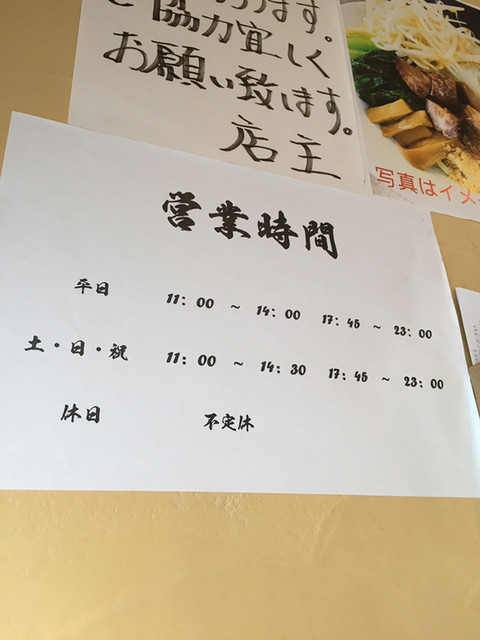 ます。
ご協力宜しく
お願い致ます。
店主
写真はイメ
営業時間
平日 11:00 ~ 14:00 17:45 ~ 23:00
土・日・祝 11:00 ~ 14:30 17:45 ~ 23:00
休日 不定休